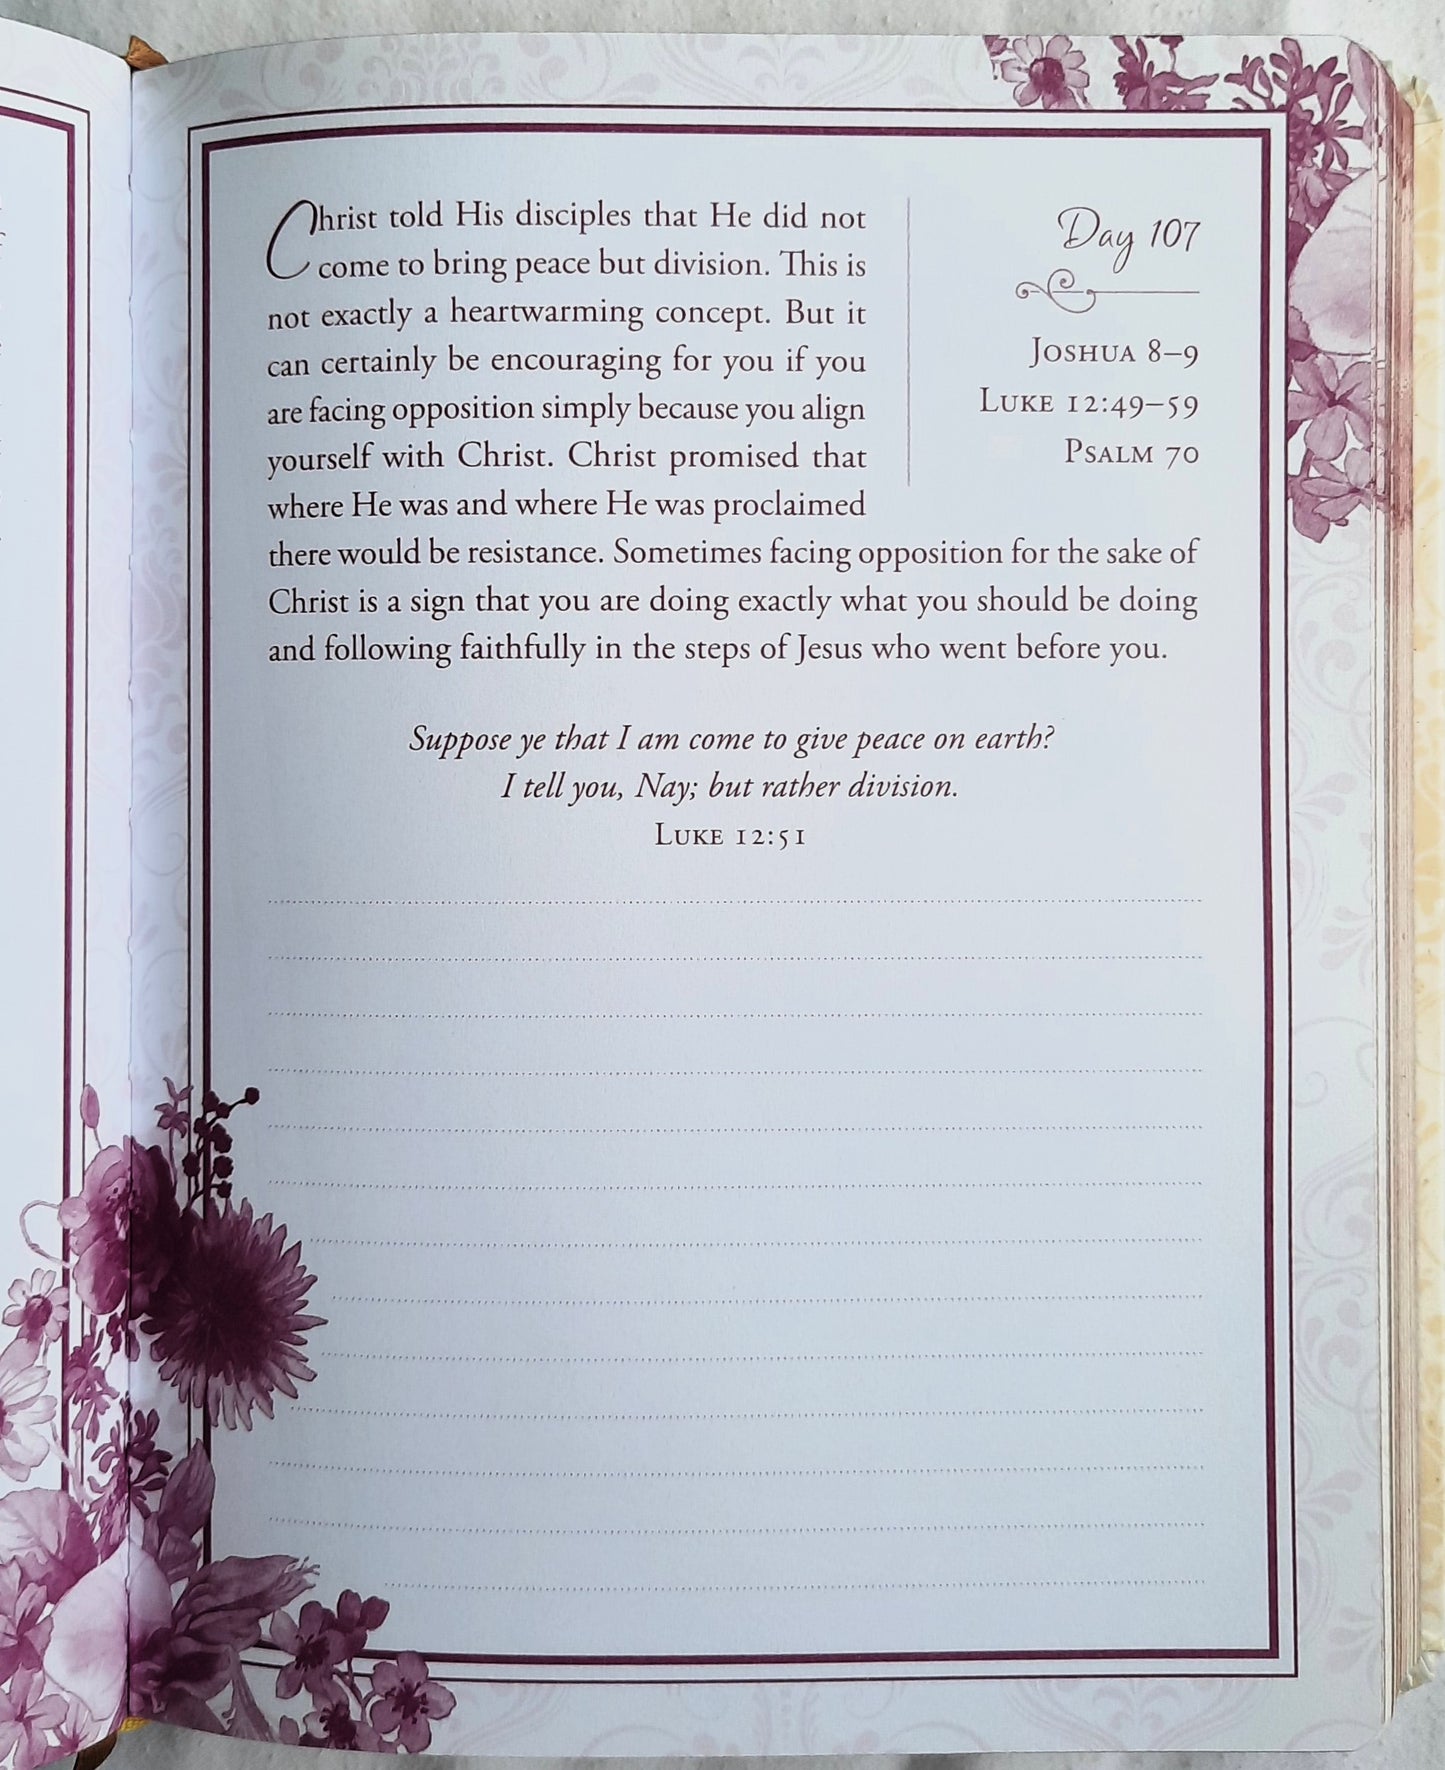 Christ told His disciples that He did not
come to bring peace but division. This is
not exactly a heartwarming concept. But it
can certainly be encouraging for you if you
are facing opposition simply because you align
yourself with Christ. Christ promised that
where He was and where He was proclaimed
there would be resistance. Sometimes facing opposition for the sake of
Christ is a sign that you are doing exactly what you should be doing
and following faithfully in the steps of Jesus who went before you.
Day 107
Joshua 8–9
Luke 12:49–59
Psalm 70
Suppose ye that I am come to give peace on earth?
I tell you, Nay; but rather division.
Luke 12:51